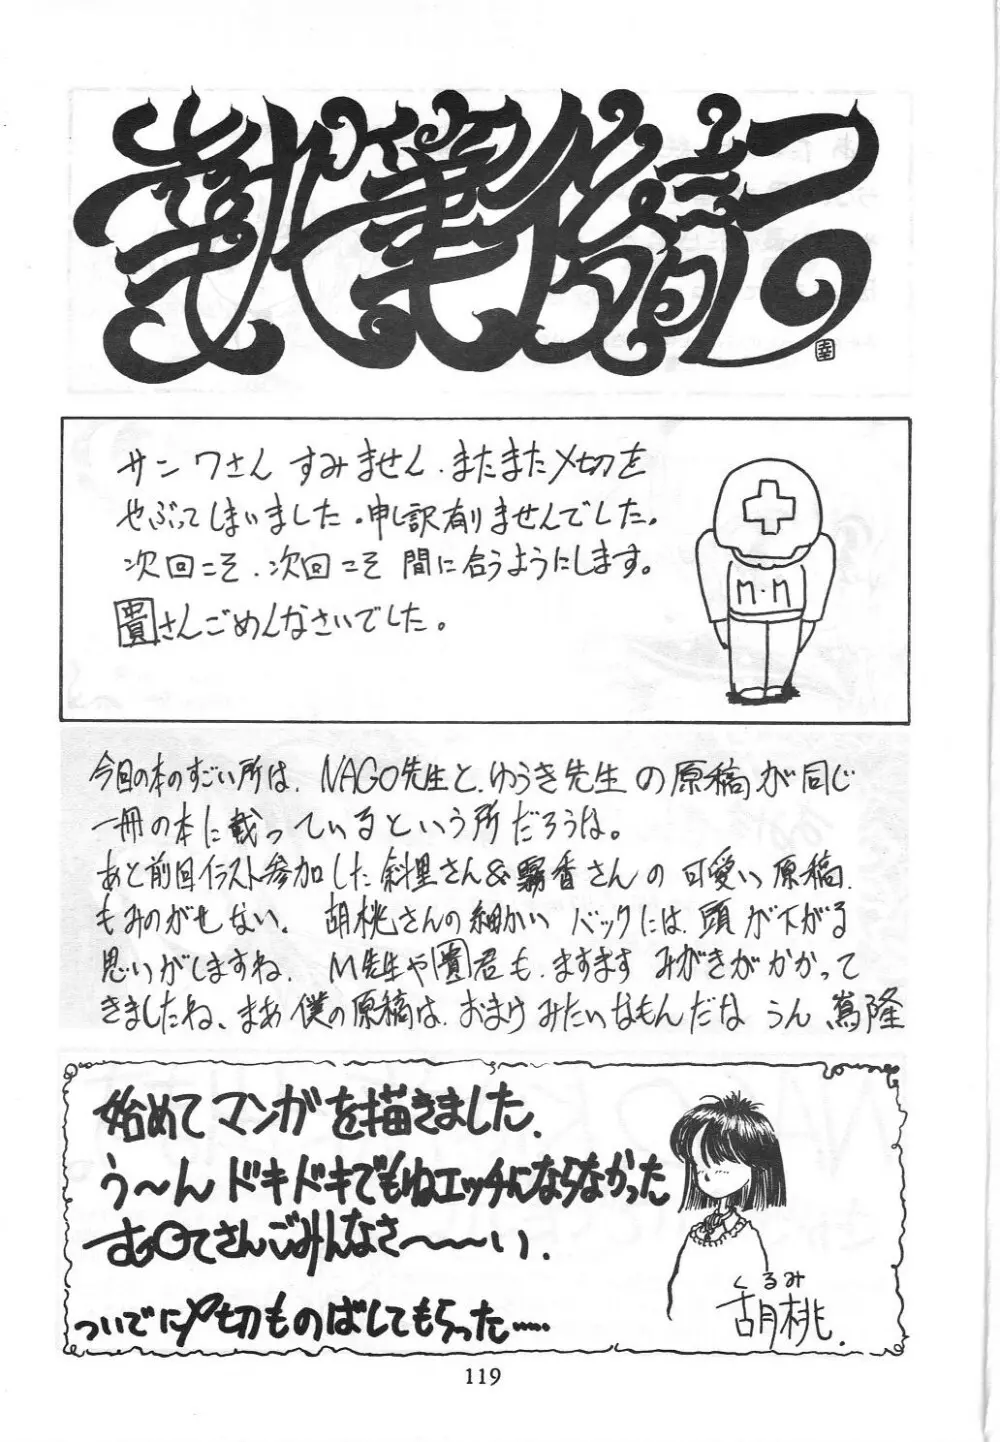 執筆後記
幸
サンワさん すみません．またまた〆切を
やぶってしまいました．申し訳有りませんでした。
次回こそ．次回こそ 間に合うようにします。
貴さんごめんなさいでした。
M・M
今回の本のすごい所は．NAGO先生と．ゆうき先生の原稿が同じ
一冊の本に載っているという所だろうな。
あと前回イラスト参加した斜里さん&霧香さんの可愛い原稿．
もみのがせない。胡桃さんの細かい バックには．頭が下がる
思いがしますね．M先生や貴君も．ますます みがきがかかって
きましたね、まあ僕の原稿は．おまけみたいなもんだな うん 嵩隆
始めてマンガを描きました．
う〜んドキドキでもねエッチにならなかった
む〇てさんごみんなさ〜〜〜い．
ついでに〆切ものばしてもらった……
くるみ
胡桃．
119